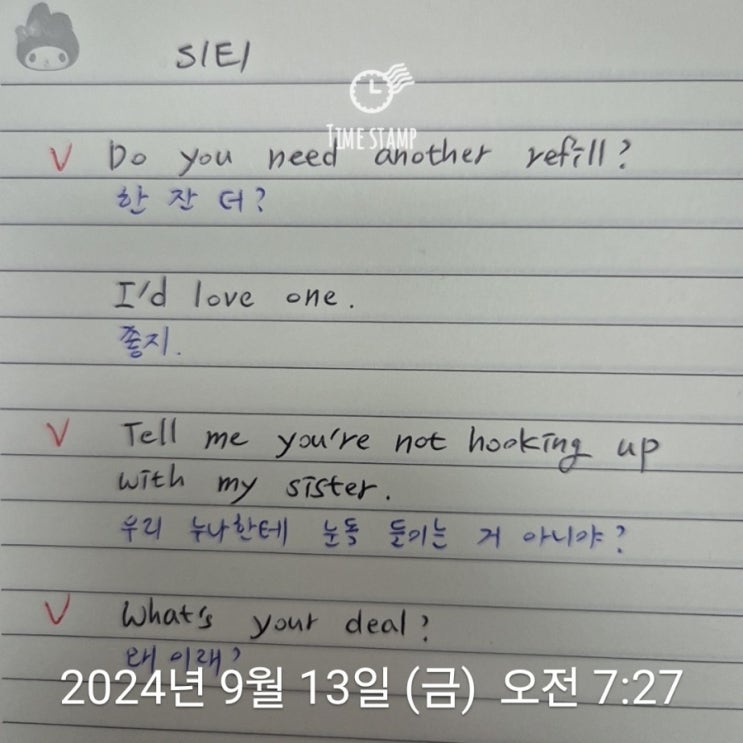 S1E1
TIME STAMP
V Do you need another refill?
한 잔 더?
I'd love one.
쫗지.
V Tell me you're not hooking up
with my sister.
우리 누나한테 눈독 들이는 거 아니야?
V What's your deal?
왜 이래?
2024년 9월 13일 (금) 오전 7:27